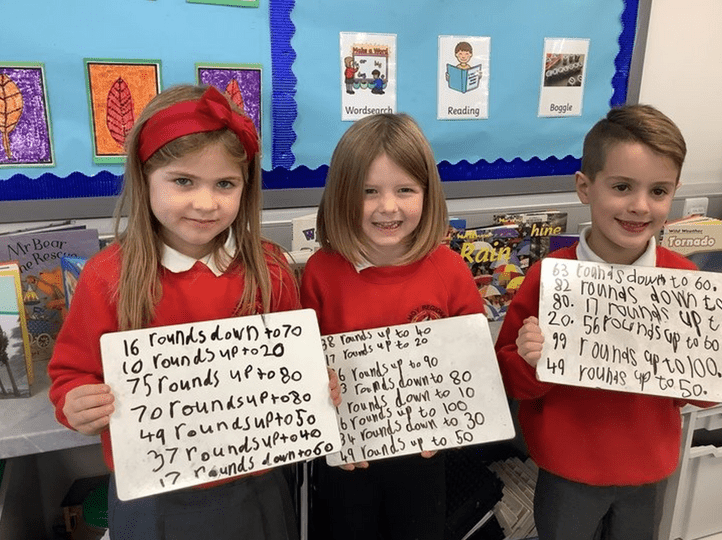 Make a Word
Wordsearch
Reading
Boggle
Mr Bear
to the Rescue
Rain
Wild Weather
Tornado
16 rounds down to 70
10 rounds up to 20
75 rounds up to 80
70 rounds up to 80
49 rounds up to 50
37 rounds up to 40
17 rounds down to 60
38 rounds up to 40
17 rounds up to 20
6 rounds up to 90
3 rounds down to 80
rounds down to 10
6 rounds up to 100
34 rounds down to 30
49 rounds up to 50
63 rounds down to 60.
82 rounds down to
80. 17 rounds up t
20. 56 rounds up to 60
99 rounds up to 100.
49 rounds up to 50.